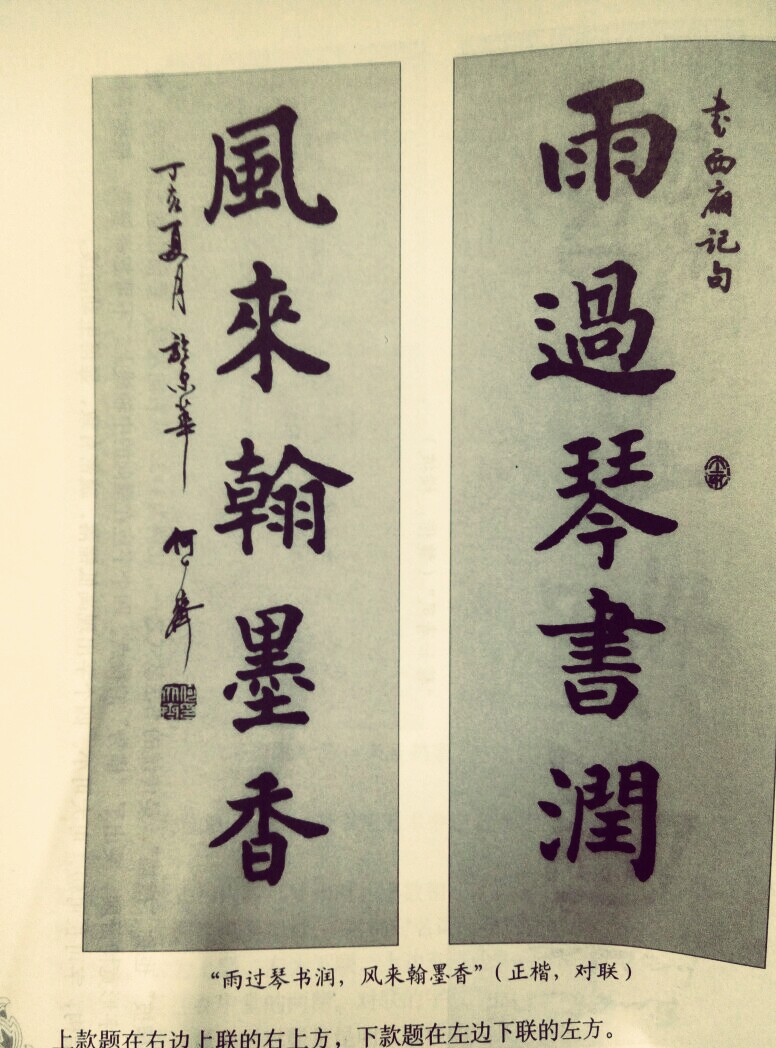 书西廂记句
雨過琴書潤
風來翰墨香
丁亥夏月於京華
“雨过琴书润，风来翰墨香”（正楷，对联）
上款题在右边上联的右上方，下款题在左边下联的左方。